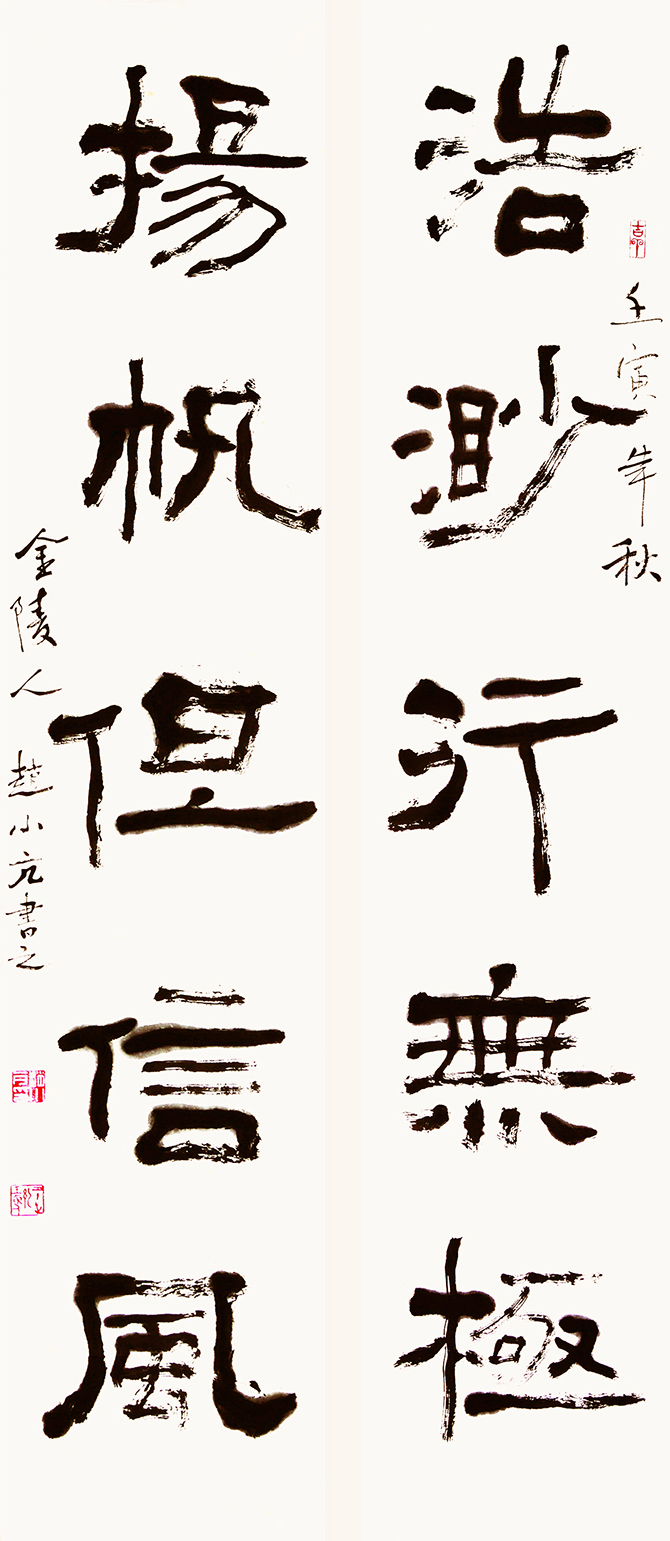 浩渺行無極
壬寅年秋
揚帆但信風
金陵人 趙小亮書之